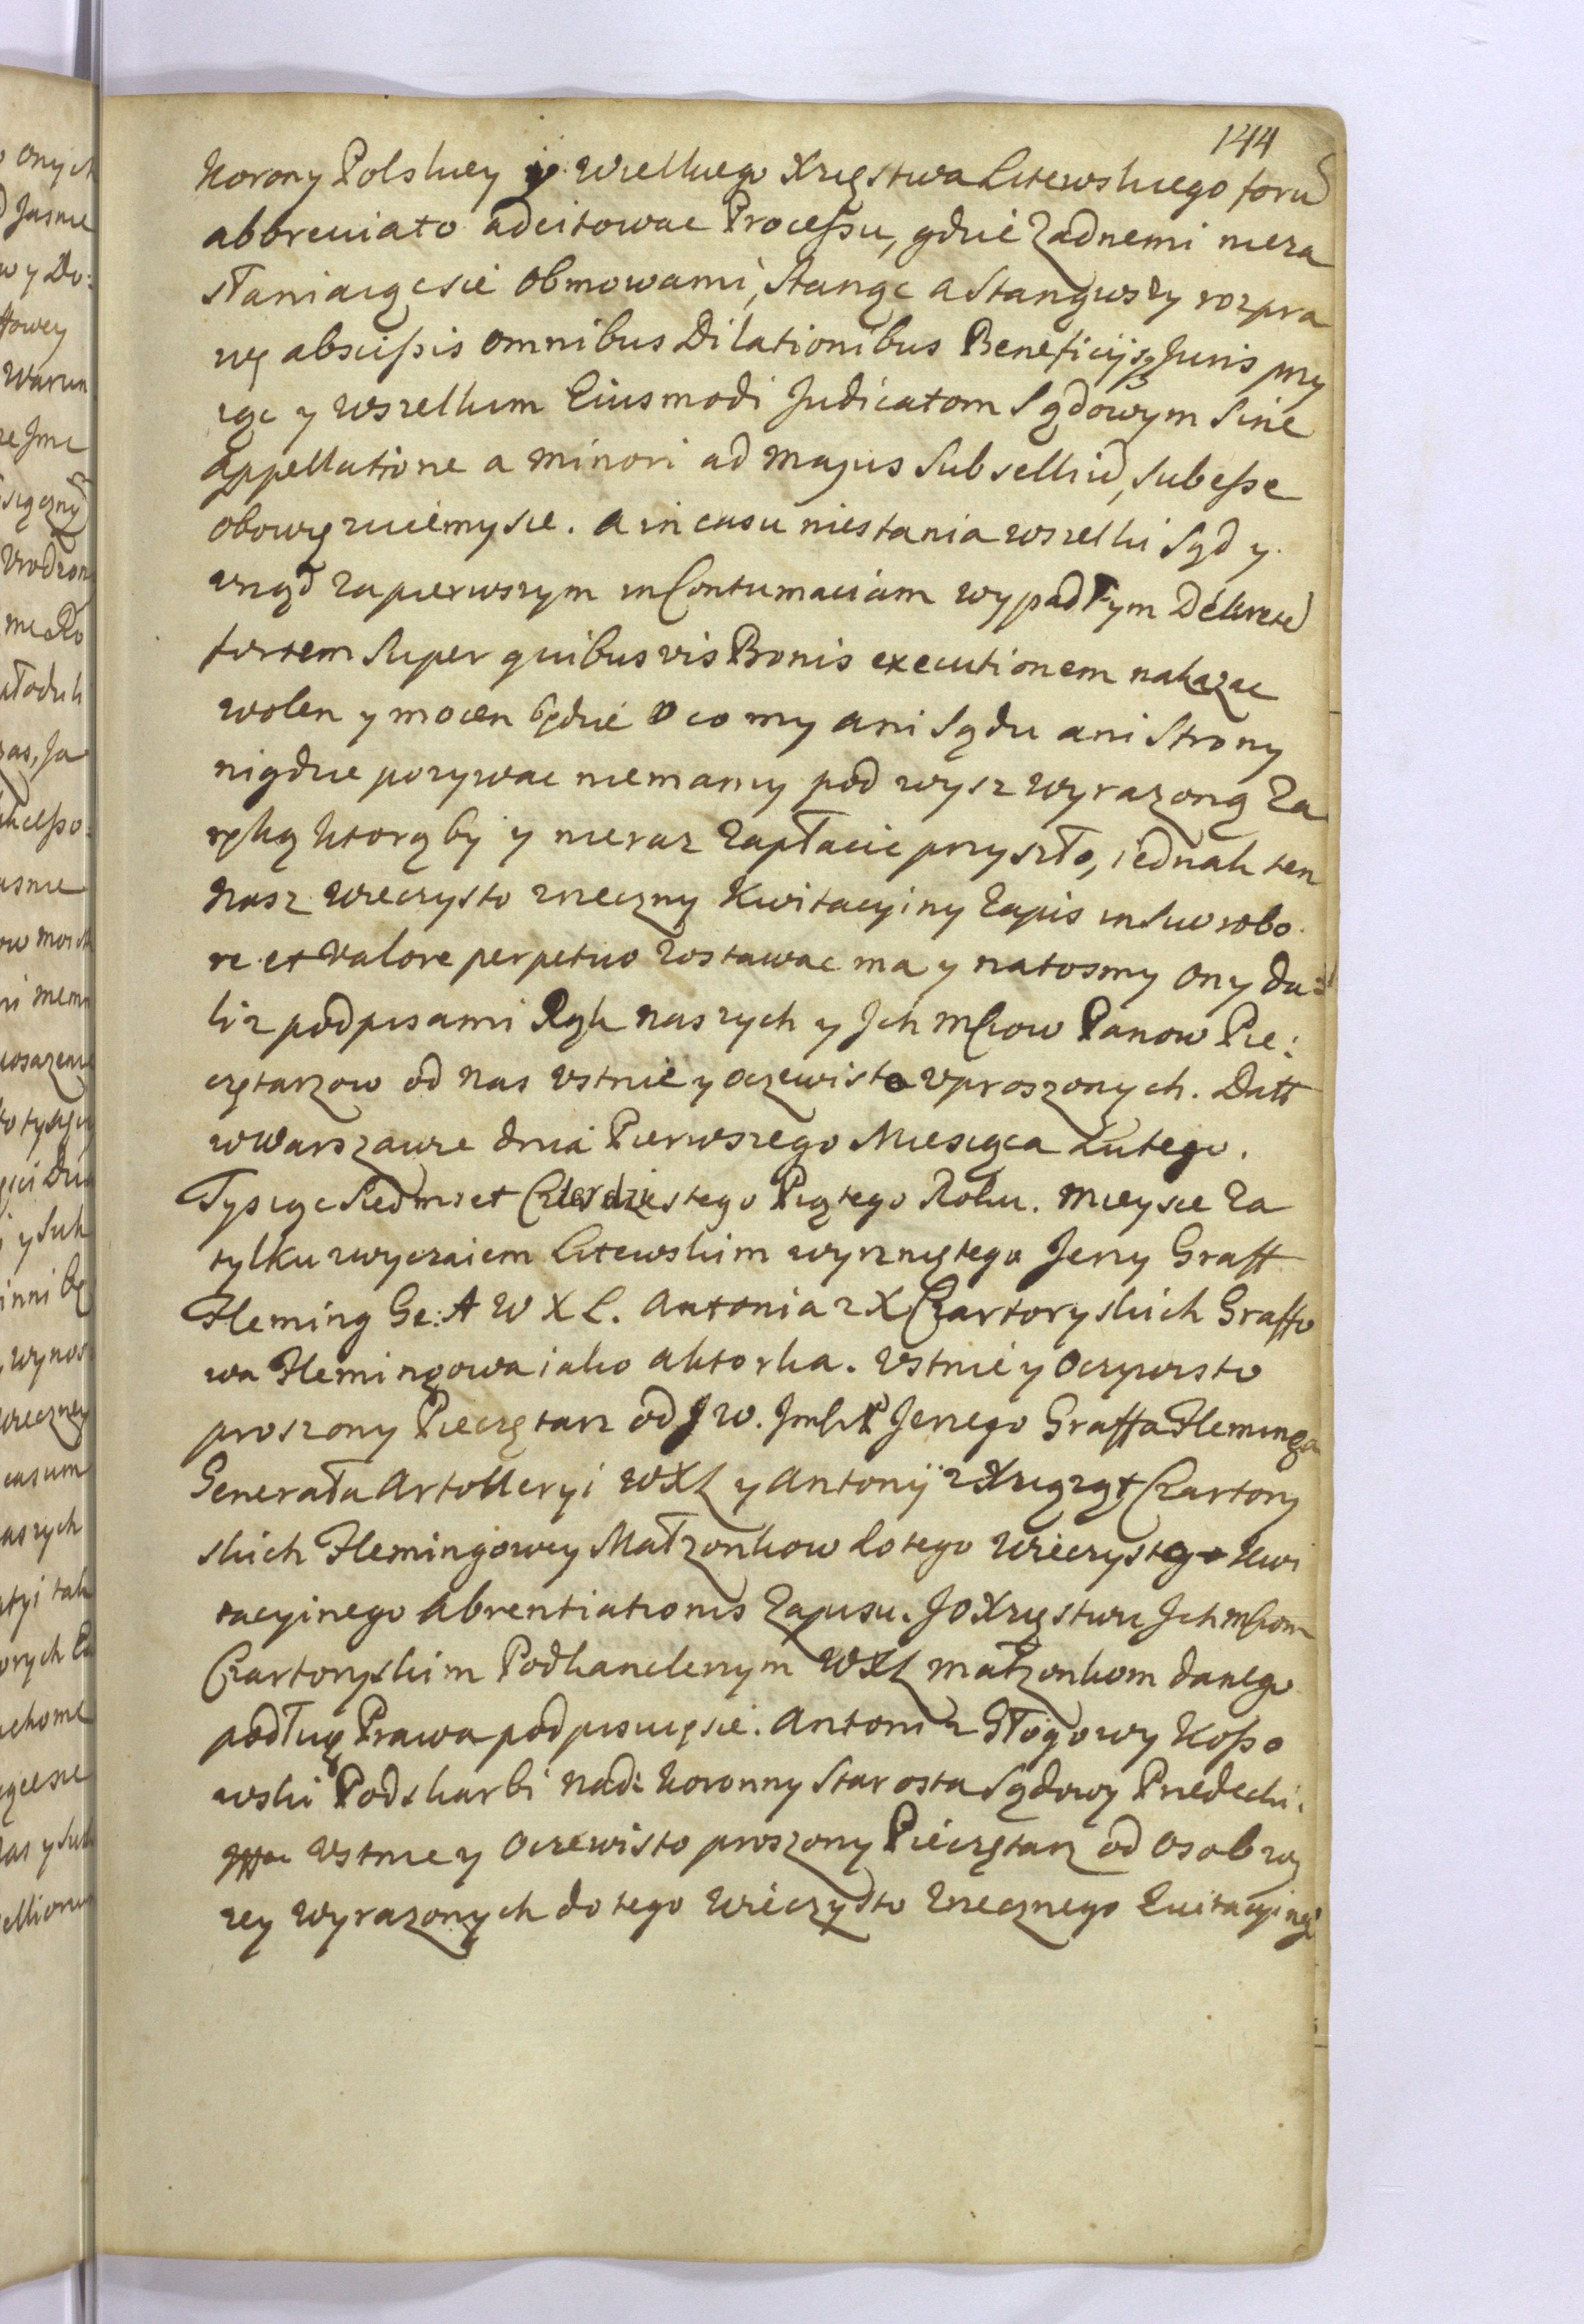 144
Korony Polskiey y Wielkiego Xięstwa Litewskiego foru
abbreviato adcitowac Processu, gdzie Zadnemi nieza
słaniaiącsie Obmowami, Stanąc a Stanąwszy rozpra
wę abscissis omnibus Dilationibus Beneficijsq Juris przy
iąc y wszelkim Eiusmodi Judicatom Sądowym Sine
appellatione a minori ad majus Subselliu, Subesse
obowięzuiemysie. A in casu niestania wszelki Sąd y
Urząd za pierwszym in Contumaciam wypadłym Dekrete
fortem Super quibusvis Bonis executionem nakazac
wolen y mocen będzie O co my ani Sądu ani Strony
nigdzie pozywac niemamy pod wysz wyrazoną Za
ręką ktorąby y nieraz zapłacic przyszło, iednak ten
Nasz wieczysto zrzeczny Kwitacyiny Zapis in Suo robo
re et Valore perpetuo zostawac ma y natosmy Ony da=
li z podpisami Rąk naszych y Ich mciow Panow Pie:
czętarzow od nas Ustnie y oczewisto Uproszonych. Datt
w Warszawie dnia Pierwszego Miesiąca Lutego.
Tysiąc Siedmset Czterdziestego Piątego Roku. Mieysce Za
tylku zwyczaiem Litewskim wyrzniętego Jerzy Graff
Fleming Ge: A W X L. Antonia z X Czartoryskich Graffo
wa Flemingowa iako aktorka. Ustnie y Oczywisto
proszony Pieczętarz od J W. Jmci P Jerzego Graffa Fleminga
Generała Artolleryi WXL y Antonij z Xiążąt Czartory
skich Flemingowey Małzonkow do tego Wieczystego Kwi
tacyinego Abrentiationis Zapisu. J O Xięstwu Ich mciom
Czartoryskim Podkanclerzym WXL małzonkom danego
podług Prawa podpisuięsie. Antoni z Głogowy Kosso
wski Podskarbi Nad: Koronny Starosta Sądowy Przedecki.
Ustnie y Oczewisto proszony Pieczętarz od Osob wy
zey wyrazonych do tego Wieczysto zrzecznego Kwitacyineg